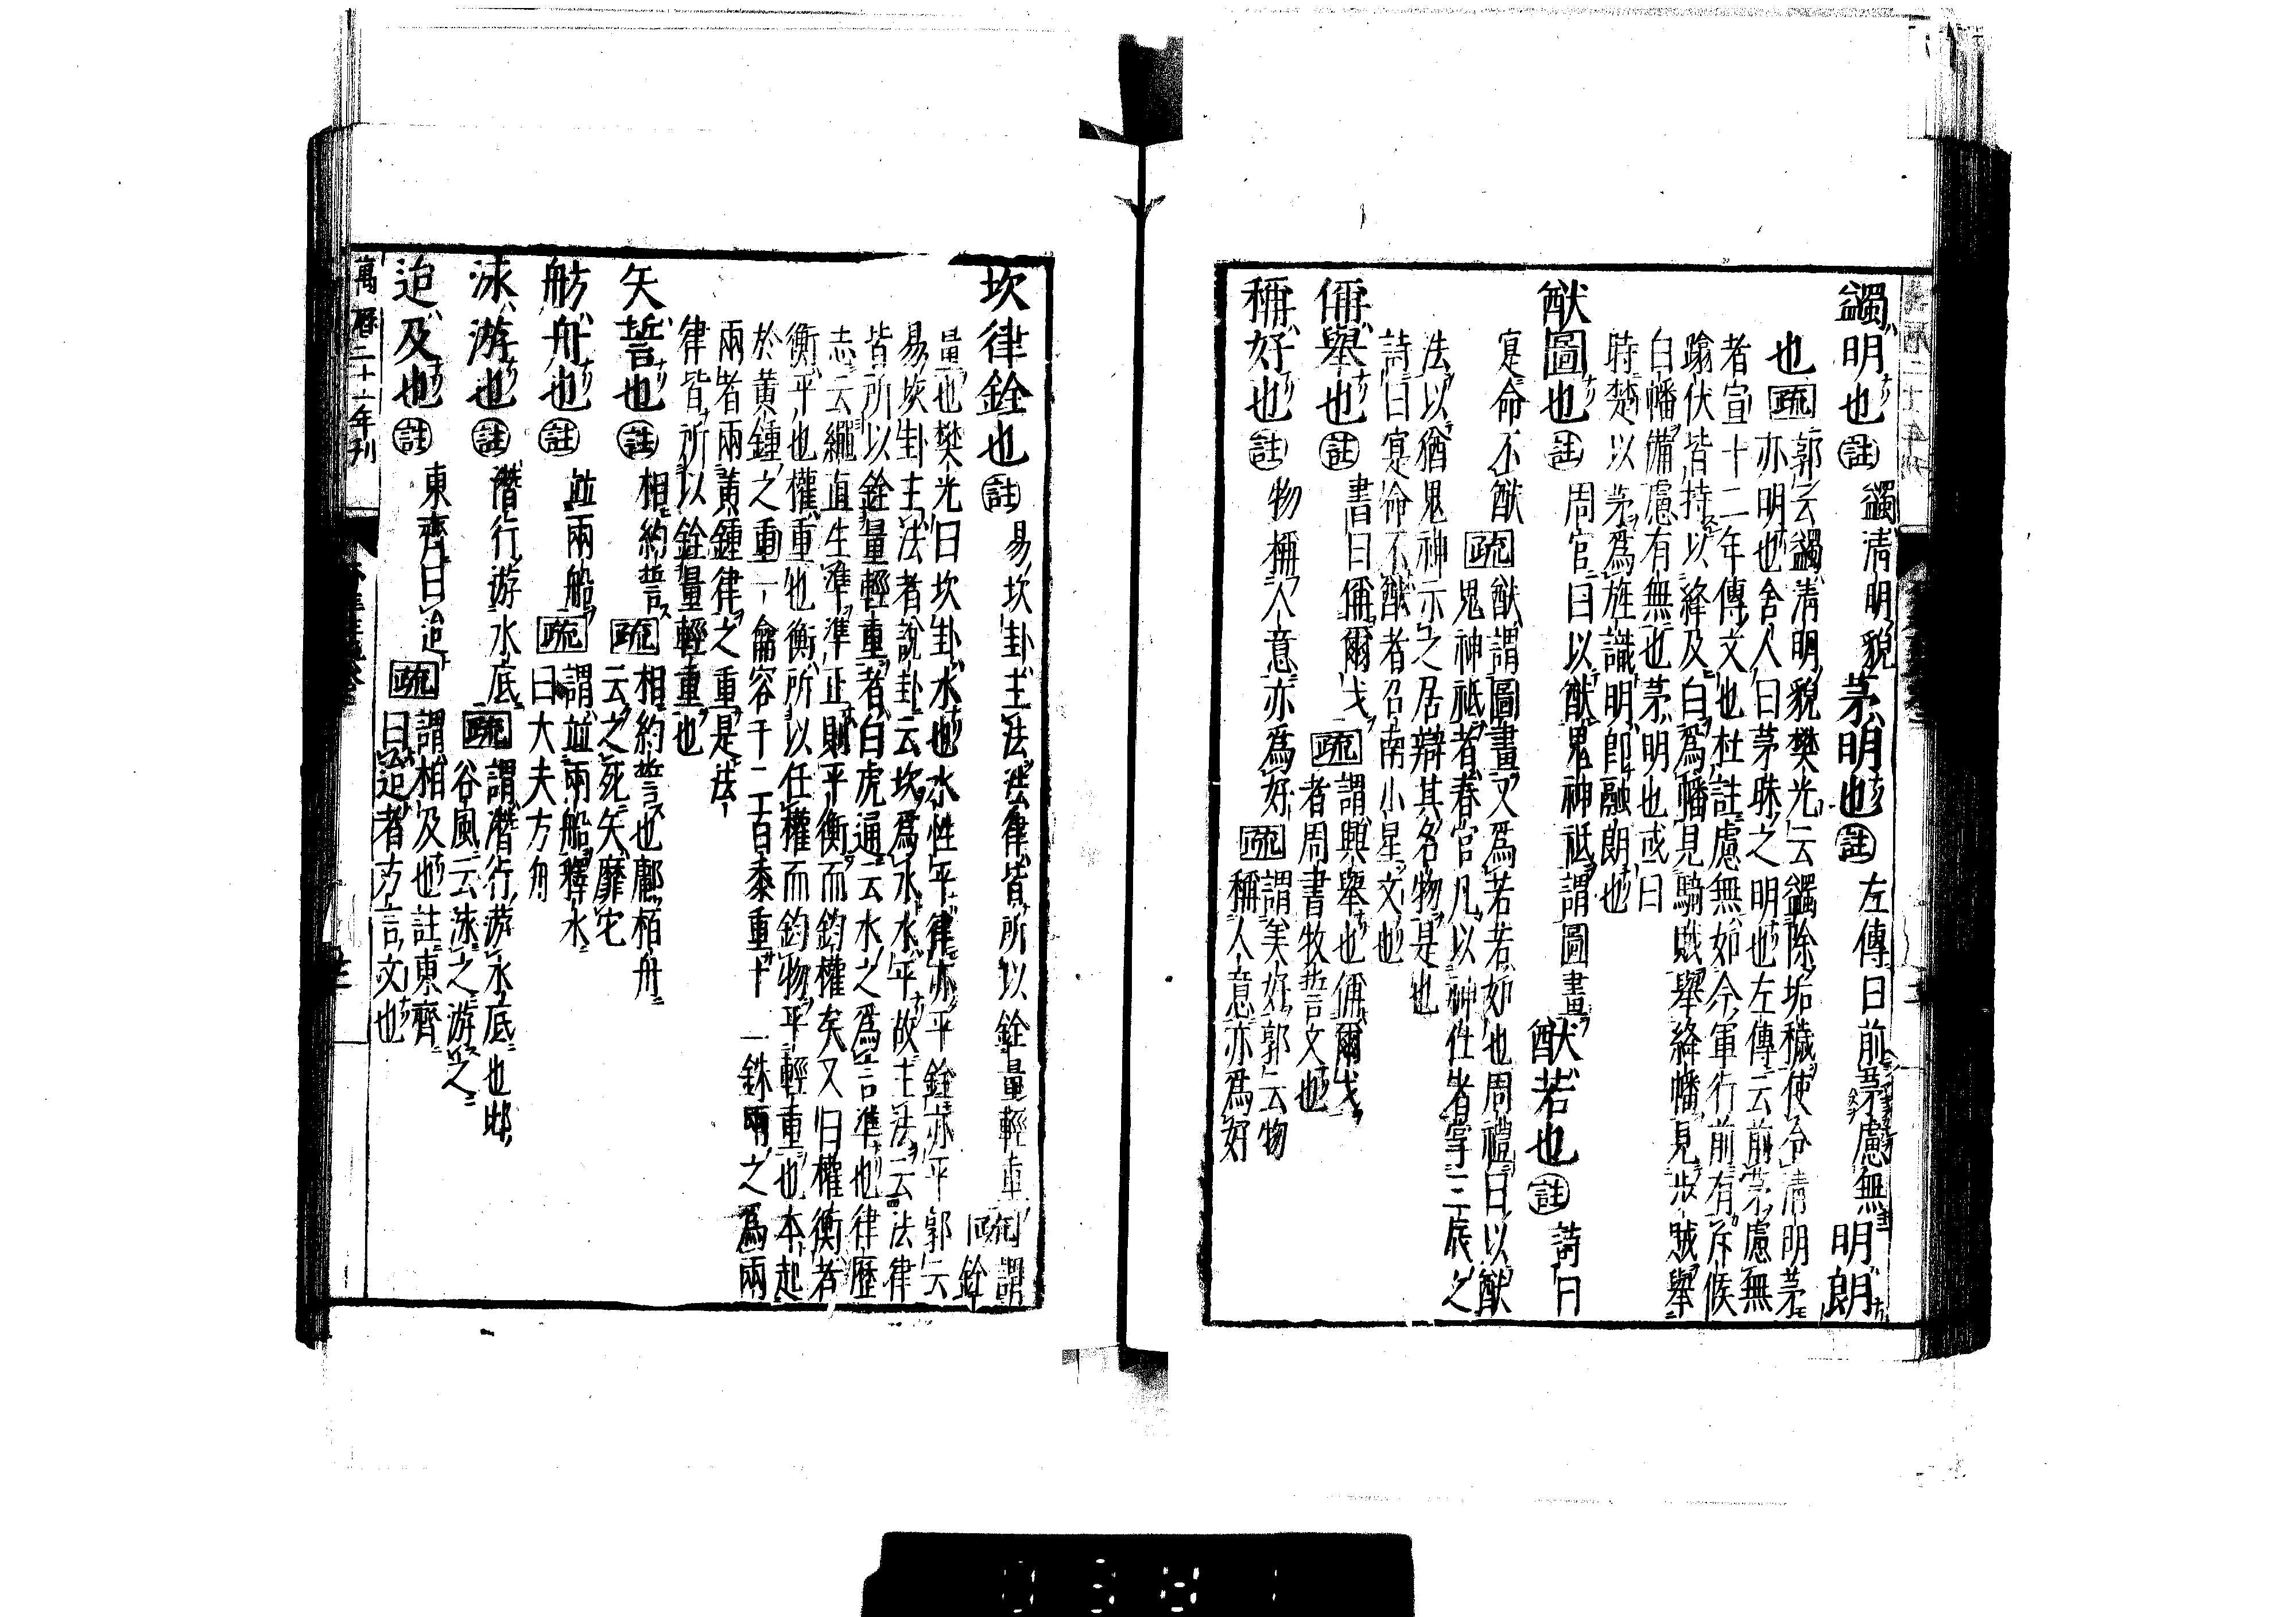 蠲明也註蠲清明貌茅明也註左傳曰前茅慮無明朗
也疏郭云蠲清明貌樊光云蠲除垢穢使令清明茅
亦明也舍人曰茅昧之明也左傳云前茅慮無
者宣十二年傳文也杜註慮無如今軍行前有斥候
蹹伏皆持以絳及白爲幡見騎賊舉絳幡見步賊舉
白幡備慮有無也茅明也或曰
時楚以茅爲旌識明郎融朗也
猷圖也註周官曰以猷鬼神祗謂圖畫猷若也註詩曰
寔命不猷疏猷謂圖畫又爲若若如也周禮曰以猷
鬼神祗者春官凡以神仕者掌三辰之
法以猶鬼神示之居辯其名物是也
詩曰寔命不猷者召南小星文也
偁舉也註書曰偁爾戈疏謂興舉也偁爾戈
者周書牧誓文也
稱好也註物稱人意亦爲好疏謂美好郭云物
稱人意亦爲好
坎律銓也註易坎卦主法法律皆所以銓量輕重疏謂
銓
量也樊光曰坎卦水也水性平律亦平銓亦平郭云
易坎卦主法者說卦云坎爲水水平故主法云法律
皆所以銓量輕重者白虎通云水之爲言準也律歷
志云繩直生準準正則平衡而鈞權矣又曰權衡者
衡平也權重也衡所以任權而鈞物平輕重也本起
於黃鍾之重一龠容千二百黍重十二銖兩之爲兩
兩者兩黃鍾律之重是法
律皆所以銓量輕重也
矢誓也註相約誓疏相約誓也鄘柏舟
云之死矢靡它
舫舟也註並兩船疏謂並兩船釋水
曰大夫方舟
泳游也註潛行游水底疏謂潛行游水底也邶
谷風云泳之游之
迨及也註東齊曰迨疏謂相及也註東齊
曰迨者方言文也
萬曆二十一年刊